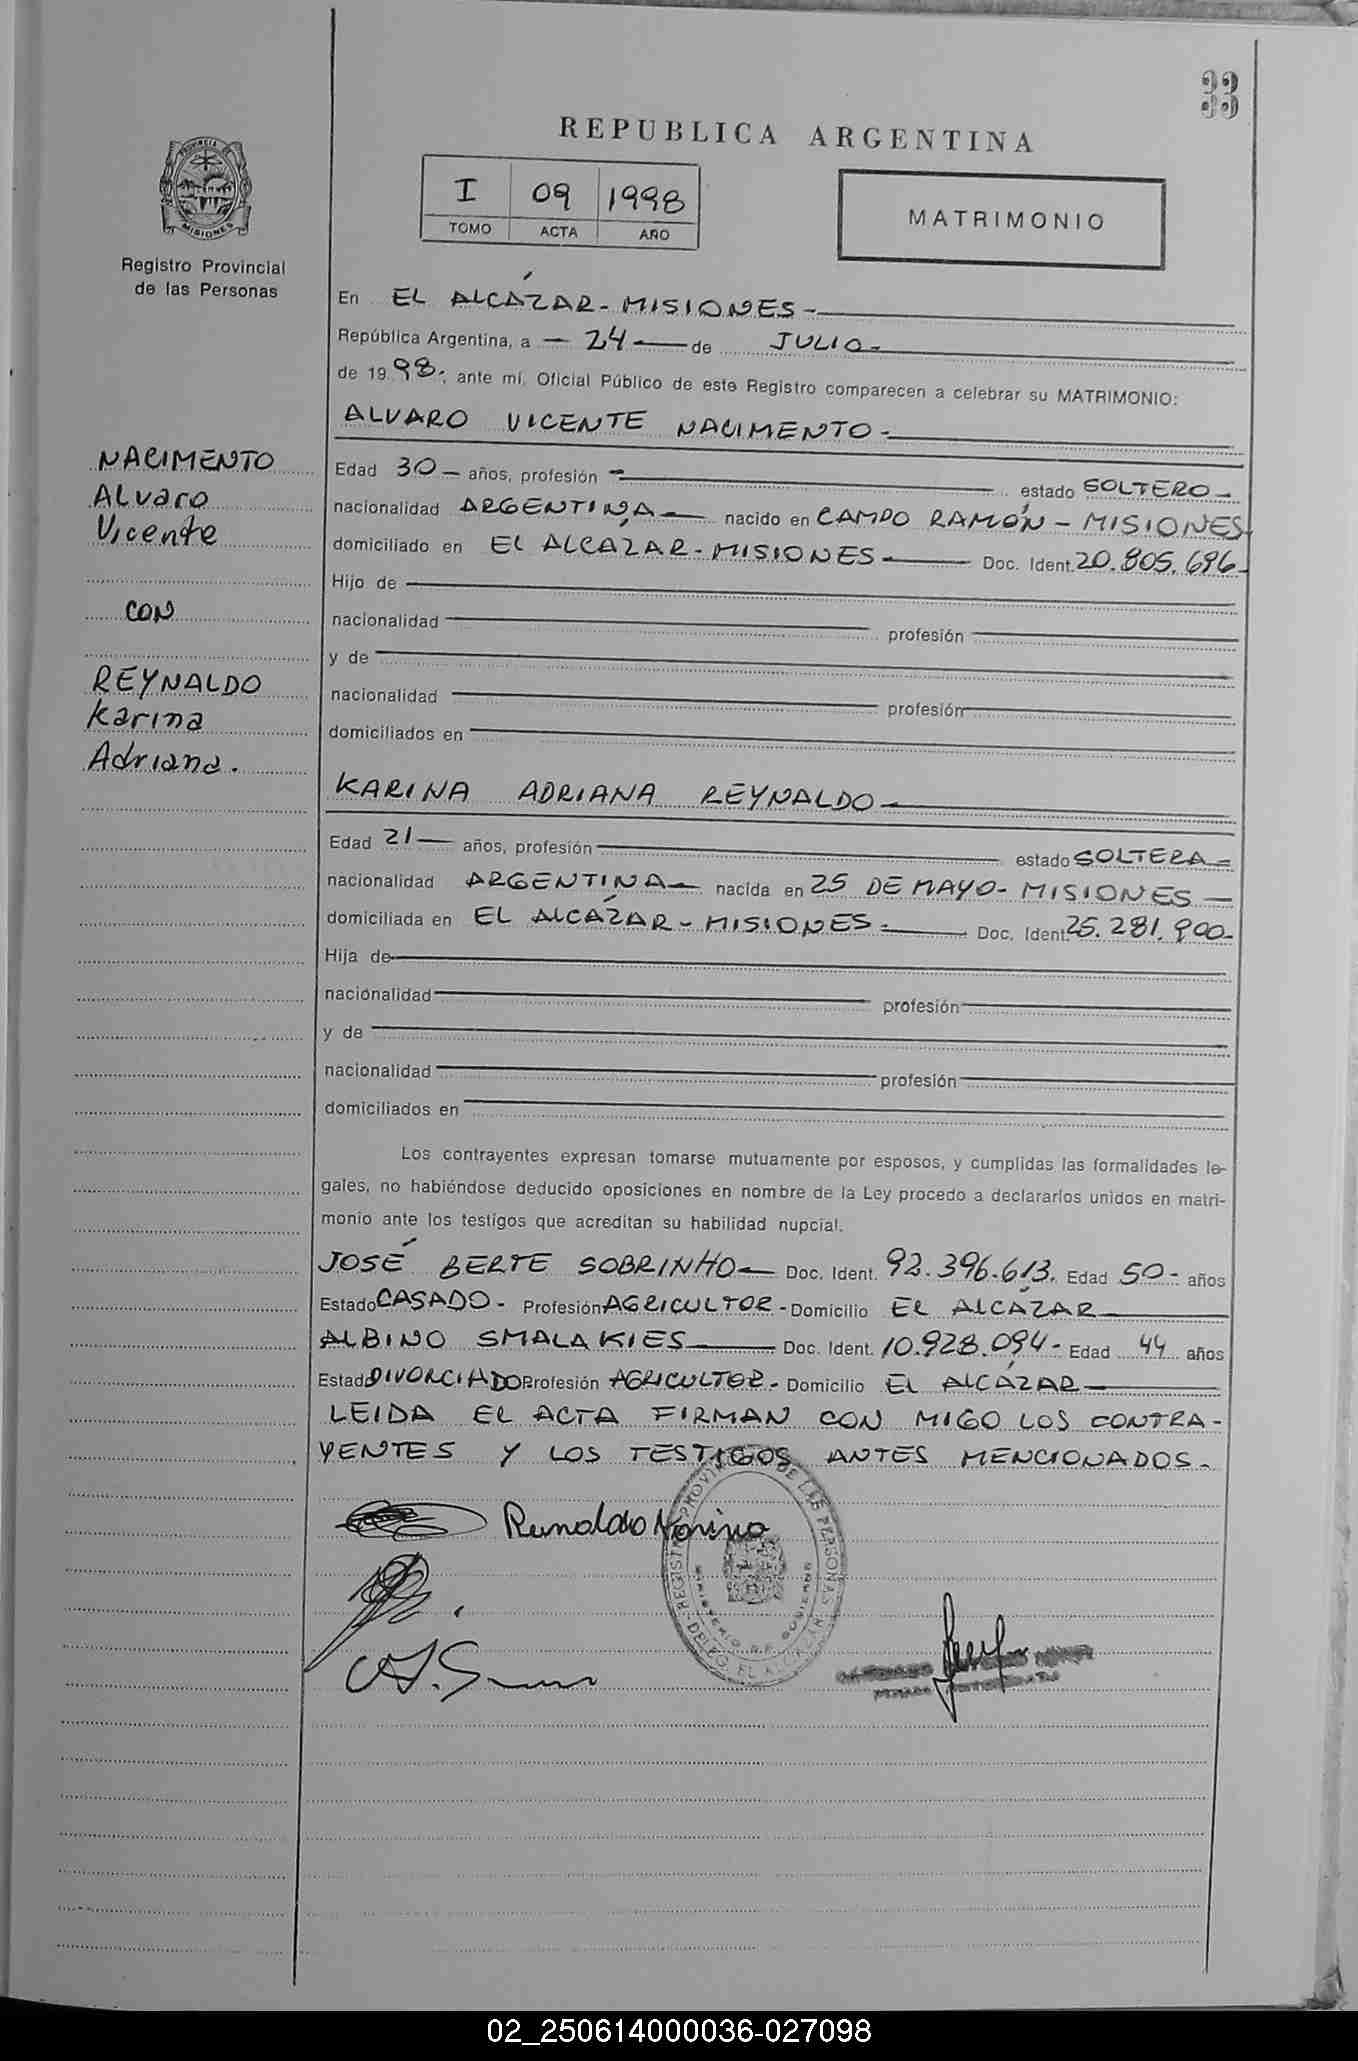 33
REPUBLICA ARGENTINA
PROVINCIA DE
MISIONES
Registro Provincial
de las Personas
I 09 1998
TOMO ACTA AÑO
MATRIMONIO
En EL ALCÁZAR - MISIONES -
República Argentina, a - 24 - de JULIO -
de 19 98 -, ante mí, Oficial Público de este Registro comparecen a celebrar su MATRIMONIO:
ALVARO VICENTE NACIMENTO -
NACIMENTO
Alvaro
Vicente
CON
REYNALDO
Karina
Adriana.
Edad 30 - años, profesión - estado SOLTERO -
nacionalidad ARGENTINA - nacido en CAMPO RAMÓN - MISIONES
domiciliado en EL ALCÁZAR - MISIONES - Doc. Ident. 20.805.696 -
Hijo de
nacionalidad profesión
y de
nacionalidad profesión
domiciliados en
KARINA ADRIANA REYNALDO -
Edad 21 - años, profesión estado SOLTERA -
nacionalidad ARGENTINA - nacida en 25 DE MAYO - MISIONES -
domiciliada en EL ALCÁZAR - MISIONES - Doc. Ident. 25.281.900 -
Hija de
nacionalidad profesión
y de
nacionalidad profesión
domiciliados en
Los contrayentes expresan tomarse mutuamente por esposos, y cumplidas las formalidades le-
gales, no habiéndose deducido oposiciones en nombre de la Ley procedo a declararlos unidos en matri-
monio ante los testigos que acreditan su habilidad nupcial.
JOSÉ BERTE SOBRINHO - Doc. Ident. 92.396.613. Edad 50 - años
Estado CASADO - Profesión AGRICULTOR - Domicilio EL ALCÁZAR
ALBINO SMALAKIES - Doc. Ident. 10.928.094 - Edad 44 años
Estado DIVORCIADO Profesión AGRICULTOR - Domicilio EL ALCÁZAR -
LEIDA EL ACTA FIRMAN CON MIGO LOS CONTRA-
YENTES Y LOS TESTIGOS ANTES MENCIONADOS -
REGISTRO PROVINCIAL DE LAS PERSONAS
MINISTERIO DE GOBIERNO
DELEG. EL ALCAZAR
02_250614000036-027098